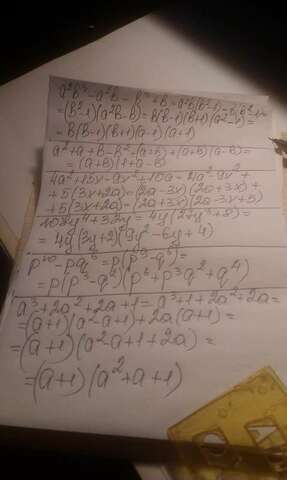 a²b³ - a²b - b³ + b = a²b(b²-1) - b(b²-1) =
= (b²-1)(a²b-b) = b(b-1)(b+1)(a²-1) =
= b(b-1)(b+1)(a-1)(a+1)
a² + a + b - b² = (a+b) + (a+b)(a-b) =
= (a+b)(1+a-b)
4a² + 15x - 9x² + 10a = 4a² - 9x² +
+ 5(3x+2a) = (2a-3x)(2a+3x) +
+ 5(3x+2a) = (2a+3x)(2a-3x+5)
108y⁴ + 32y = 4y(27y³+8) =
= 4y(3y+2)(9y²-6y+4)
p¹⁰ - pq⁶ = p(p⁹-q⁶) =
= p(p³-q²)(p⁶+p³q²+q⁴)
a³ + 2a² + 2a + 1 = a³ + 1 + 2a² + 2a =
= (a+1)(a²-a+1) + 2a(a+1) =
= (a+1)(a²-a+1+2a) =
= (a+1)(a²+a+1)